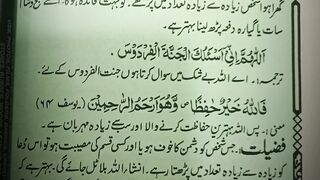 گھرا ہو اشخص سے زیادہ تعداد میں پڑھے
سات یا گیارہ دفعہ پڑھ لینا بہتر ہے۔
اَللّٰهُمَّ اِنِّیْ اَسْئَلُكَ الْجَنَّةَ الْفِرْدَوْسَ۔
ترجمہ:۔ اے اللہ بے شک میں سوال کرتا ہوں جنت الفردوس کے لیے۔
فَاللّٰهُ خَیْرٌ حٰفِظًا ۪ وَّهُوَ اَرْحَمُ الرّٰحِمِیْنَ (یوسف ۶۴)
معنی:۔ پس اللہ بہترین حفاظت کرنے والا اور سب سے زیادہ مہربان ہے۔
فضیلت:۔ جس شخص کو دشمن کا خوف ہو یا اور کسی قسم کی مصیبت ہو تو اس دعا
کو زیادہ سے زیادہ تعداد میں پڑھے۔ انشاء اللہ بلا ٹل جائے گی، بہتر ہے کہ